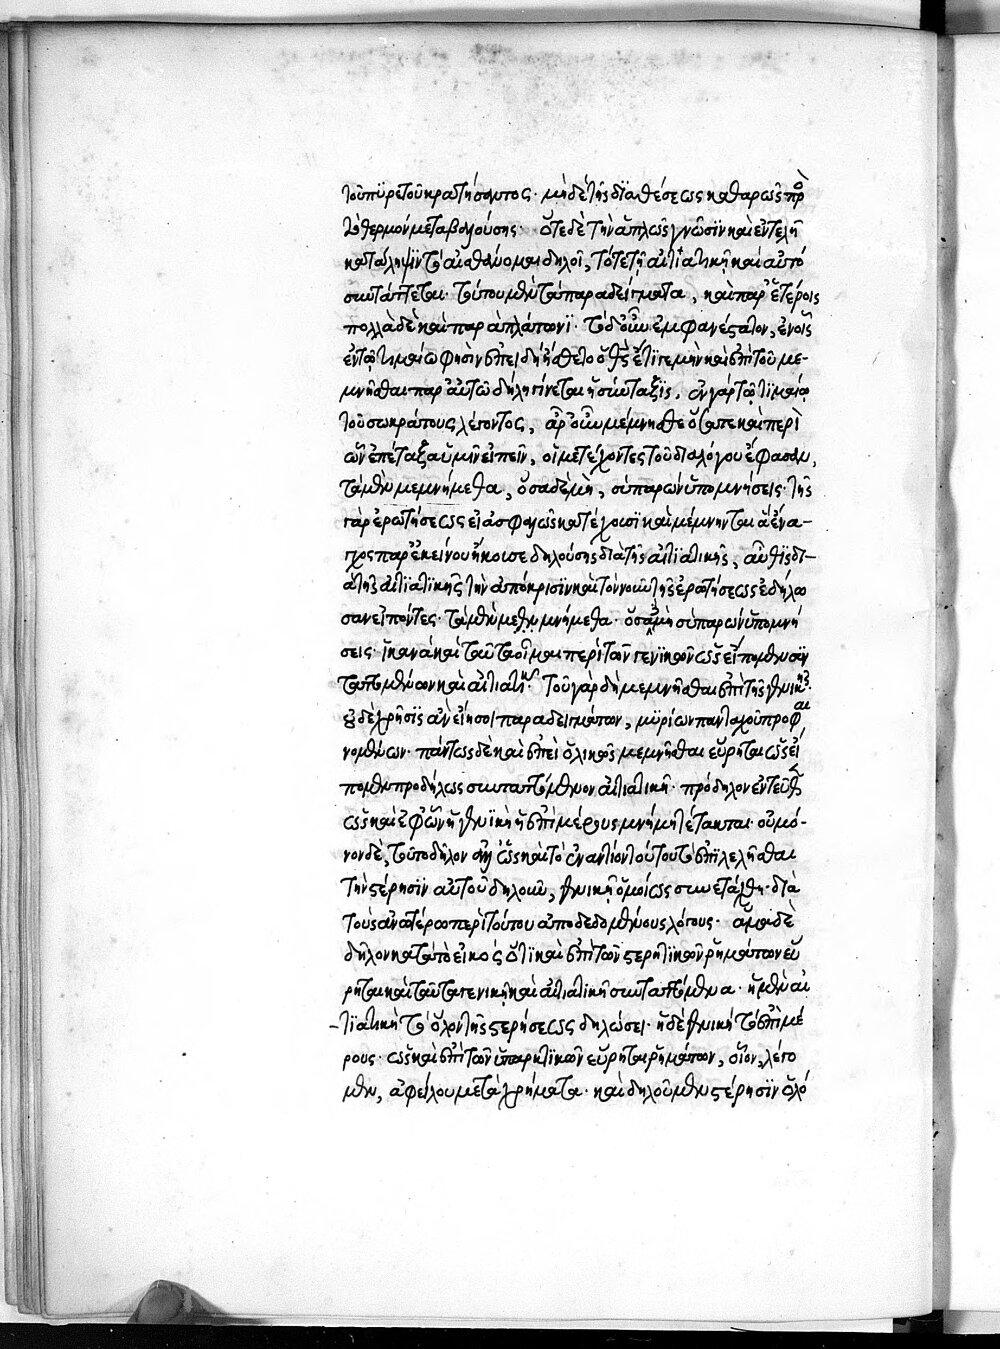 τοῦ πυρετοῦ κρατήσαντος· μὴ δὲ τῆς διαθέσεως καθαρῶς πρὸ
τὸ θερμὸν μεταβαλούσης· ὅτε δὲ τὴν ἁπλῶς γνῶσιν καὶ ἐντελῆ
κατάληψιν τὸ αἰσθάνομαι δηλοῖ, τότε τῇ αἰτιατικῇ καὶ αὐτὸ
συντάττεται· τούτου μὲν τὰ παραδείγματα, καὶ παρ' ἑτέροις
πολλὰ δὲ καὶ παρὰ πλάτωνι· τὸ δ' οὖν ἐμφανέστατον, ἐν οἷς
ἐν τῷ τιμαίῳ φησὶν ἐπειδὴ ἤσθετο ἔτι γε μὴν καὶ ἐπὶ τοῦ με-
μνῆσθαι παρ' αὐτῷ δήλη γίνεται ἡ σύνταξις. ἐν γὰρ τῷ τιμαίῳ
τοῦ σωκράτους λέγοντος, ἆρ' οὖν μέμνησθε ὅσα τε καὶ περὶ
ὧν ἐπέταξα ὑμῖν εἰπεῖν, οἱ μετέχοντες τοῦ διαλόγου ἔφασαν,
τὰ μὲν μεμνήμεθα, ὅσα δὲ μὴ, σὺ παρὼν ὑπομνήσεις· τῆς
γὰρ ἐρωτήσεως εἰ ἀσφαλῶς κατέχουσι καὶ μέμνηνται ἃ ἔνα-
γχος παρ' ἐκείνου ἤκουσε δηλούσης διὰ τῆς αἰτιατικῆς, αὖθις δι-
ὰ τῆς αἰτιατικῆς τὴν ἀπόκρισιν κατὰ τὸν νοῦν τῆς ἐρωτήσεως ἐδήλω
σαν εἰπόντες· τὰ μὲν μεμνήμεθα· ὅσα δὲ μὴ σὺ παρὼν ὑπομνή
σεις· ἱκανὰ καὶ ταῦτα οἶμαι περὶ τῶν γενικῶν ὡς εἴπομεν συν
ταττομένων καὶ αἰτιατικῇ· τοῦ γὰρ δὴ μεμνῆσθαι ἐπὶ τῆς γενικῆς
οὐδὲ χρῆσις ἂν εἴη σοι παραδειγμάτων, μυρίων πανταχοῦ προφαι
νομένων· πάντως δὲ καὶ ἐπεὶ ὁλικῶς μεμνῆσθαι εὕρηται ὡς εἴ
πομεν προδήλως συνταττόμενον αἰτιατικῇ· πρόδηλον ἐντεῦθεν
ὡς καὶ ἐφ' ὧν ἡ γενικὴ ἡ ἐπὶ μέρους μνήμη τέτακται· οὐ μό-
νον δὲ, τοῦτο δῆλον ἀλλ' ὡς καὶ τὸ ἐναντίον τούτου τὸ ἐπιλελῆσθαι
τὴν στέρησιν αὐτοῦ δηλοῦν, γενικῇ ὁμοίως συνετάχθη· διὰ
τοὺς ἀνωτέρω περὶ τούτου ἀποδεδομένους λόγους· ἅμα δὲ
δῆλον κατὰ τὸ εἰκὸς ὅτι καὶ ἐπὶ τῶν στερητικῶν ῥημάτων εὕ
ρηται καὶ ταῦτα γενικῇ καὶ αἰτιατικῇ συνταττόμενα· ἡ μὲν αἰ
τιατικὴ τὸ ὅλον τῆς στερήσεως δηλώσει· ἡ δὲ γενικὴ τὸ ἐπὶ μέ
ρους· ὡς καὶ ἐπὶ τῶν ὑπαρκτικῶν εὕρηται ῥημάτων, οἷον, λέγο
μεν, ἀφείλου με τὰ χρήματα· καὶ δηλοῦμεν στέρησιν ὁλό